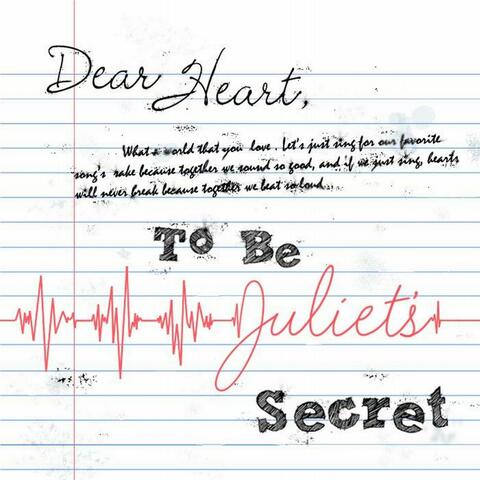 Dear Heart,
What a world that you love. Let's just sing for our favorite
song's sake because together we sound so good, and if we just sing, hearts
will never break because together we beat so loud
To Be
Juliet's
Secret